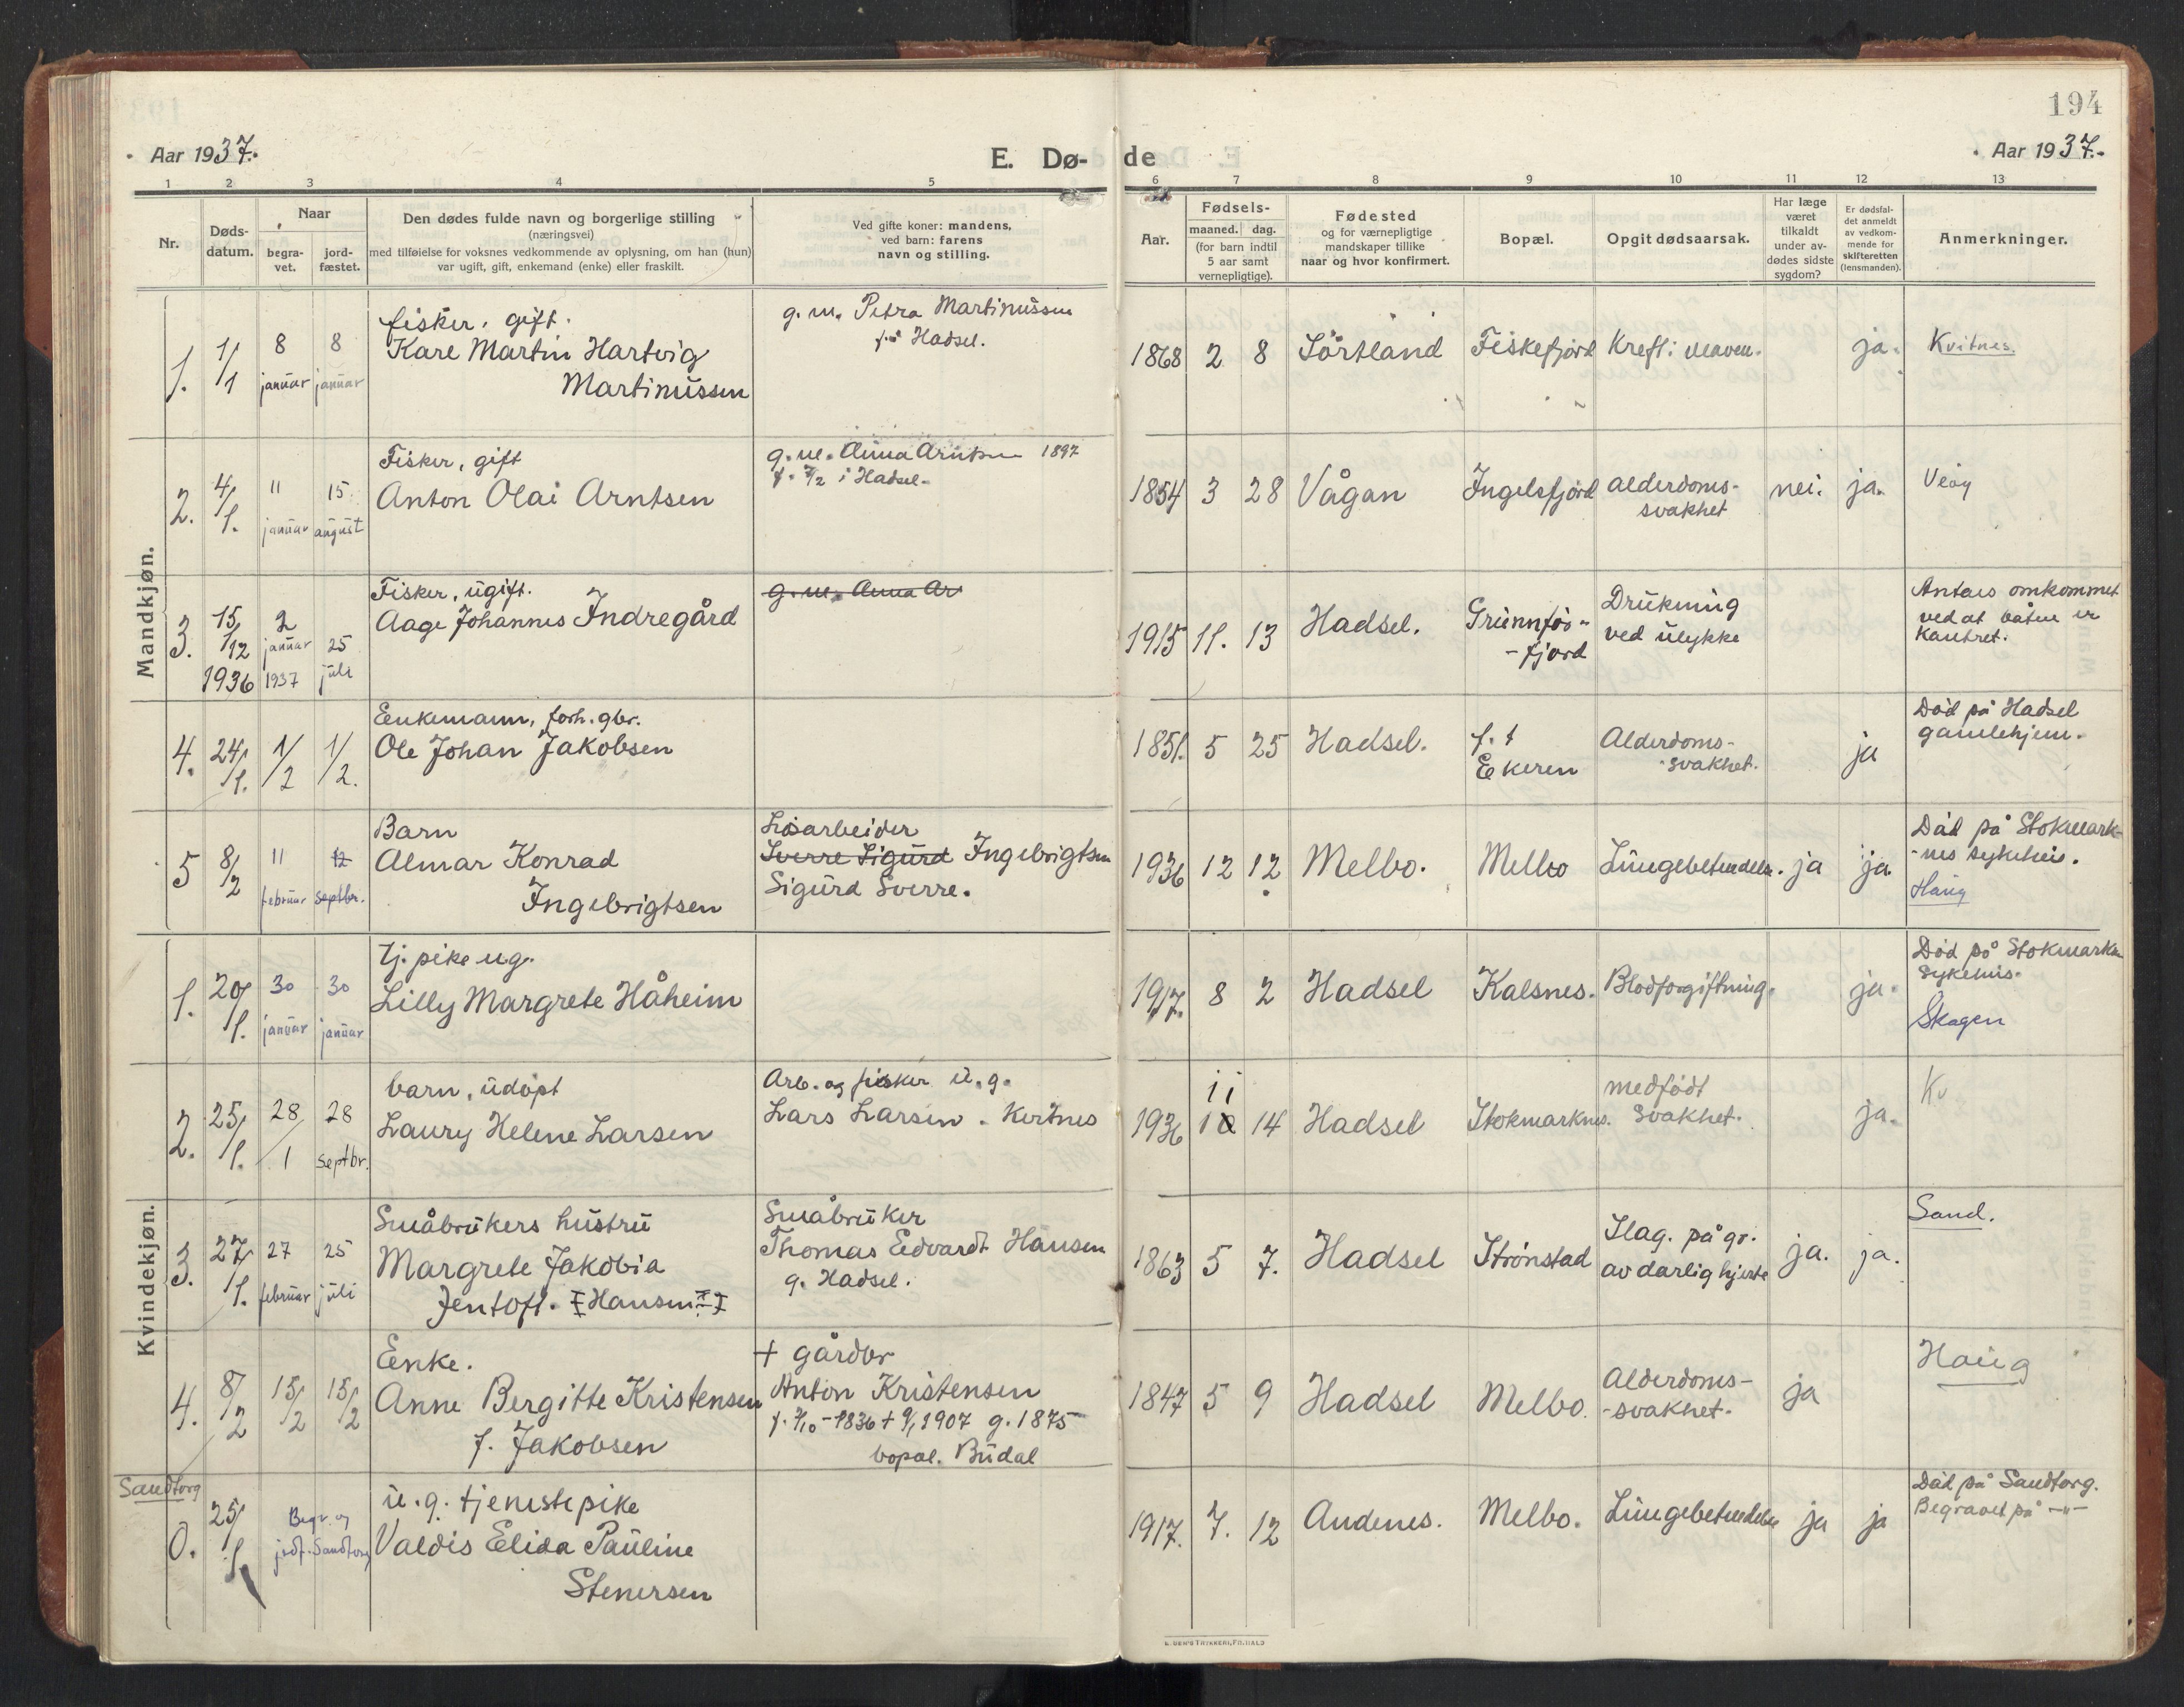 194
Aar 1937.
E. Døde
Aar 1937.
1 2 3 4 5 6 7 8 9 10 11 12 13
Nr.
Dødsdatum.
Naar
begravet.
jordfæstet.
Den dødes fulde navn og borgerlige stilling
(næringsvei)
med tilføielse for voksnes vedkommende av oplysning, om han (hun)
var ugift, gift, enkemand (enke) eller fraskilt.
Ved gifte koner: mandens,
ved barn: farens
navn og stilling.
Aar.
Fødsels-
maaned. dag.
(for barn indtil
5 aar samt
vernepligtige).
Fødested
og for værnepligtige
mandskaper tillike
naar og hvor konfirmert.
Bopæl.
Opgit dødsaarsak.
Har læge
været
tilkaldt
under av-
dødes sidste
sygdom?
Er dødsfal-
det anmeldt
av vedkom-
mende for
skifteretten
(lensmanden).
Anmerkninger.
Mandkjøn.
1. 1/1 8 januar 8 januar
fisker, gift.
Kare Martin Hartvig
Martinussen
g. m. Petra Martinussen
Hadsel.
1868 2 8 Sörtland Fiskefjord Kreft i maven. ja. Kvitnes.
2. 4/1. 11 januar 15 august
Fisker, gift
Anton Olai Arntsen
g. m. Anna Arntsen 1897
f. 7/2 i Hadsel.
1854 3 28 Vågan Ingelsfjord Alderdoms-
svakhet
nei. ja.
3. 15/12 1936 2 januar 1937 25 juli
Fisker, ugift.
Aage Johannes Indregård
g. m. Anna Ar
1915 11. 13 Hadsel. Grunnfør-
-fjord
Drukning
ved ulykke
Antaes omkommet
ved at båten er
kantret.
4. 24/1. 1/2 1/2.
Enkemann, forh. gbr.
Ole Johan Jakobsen
1851. 5 25 Hadsel. f. t
Ekeren
Alderdoms-
svakhet.
ja
Död på Hadsel
gamlehjem.
5 8/2 11 februar 12 septbr.
Barn
Almar Konrad
Ingebrigtsen
Løsarbeider
Sverre Sigurd Ingebrigtsen
Sigurd Sverre.
1936 12 12 Melbo. Melbo Lungebetendelse. ja ja
Död på Stokmark-
-nes sykehus.
Haug
Kvindekjøn.
1. 20/1. 30 januar 30 januar
tj. pike ug.
Lilly Margrete Håheim
1917. 8 2 Hadsel Kalsnes. Blodforgiftning. ja.
Död på Stokmarkn
sykehus.
Skagen
2. 25/1. 28/1 28 septbr.
barn, udöpt
Laury Helene Larsen
Arb. og fisker u. g.
Lars Larsen. Kvitnes
1936 11 10 14 Hadsel Stokmarknes. medfödt
svakhet.
ja. Kv
3. 27/1. 27 februar 25 juli
Småbrukers hustru
Margrete Jakobia
Jentoft. Hansen
Småbruker
Thomas Edvardt Hansen
g. Hadsel.
1863 5 7. Hadsel Strönstad Slag. på gr.
av darlig hjerte
ja. ja. Sand.
4. 8/2 15/2 15/2
Enke.
Anne Bergitte Kristensen
f. Jakobsen
+ gårdbr
Anton Kristensen
f. 7/10 - 1836 + 9/1 1907 g. 1875
bopæl. Budal
1847 5 9 Hadsel Melbo. Alderdoms-
-svakhet.
ja Haug
Sandtorg
0. 25/1 Begr. og
jrdf. Sandtorg
u. g. tjenestepike
Valdis Elida Pauline
Stenersen
1917. 7. 12 Andenes. Melbo. Lungebetendelse ja ja
Död på Sandtorg.
Begravet på -"-